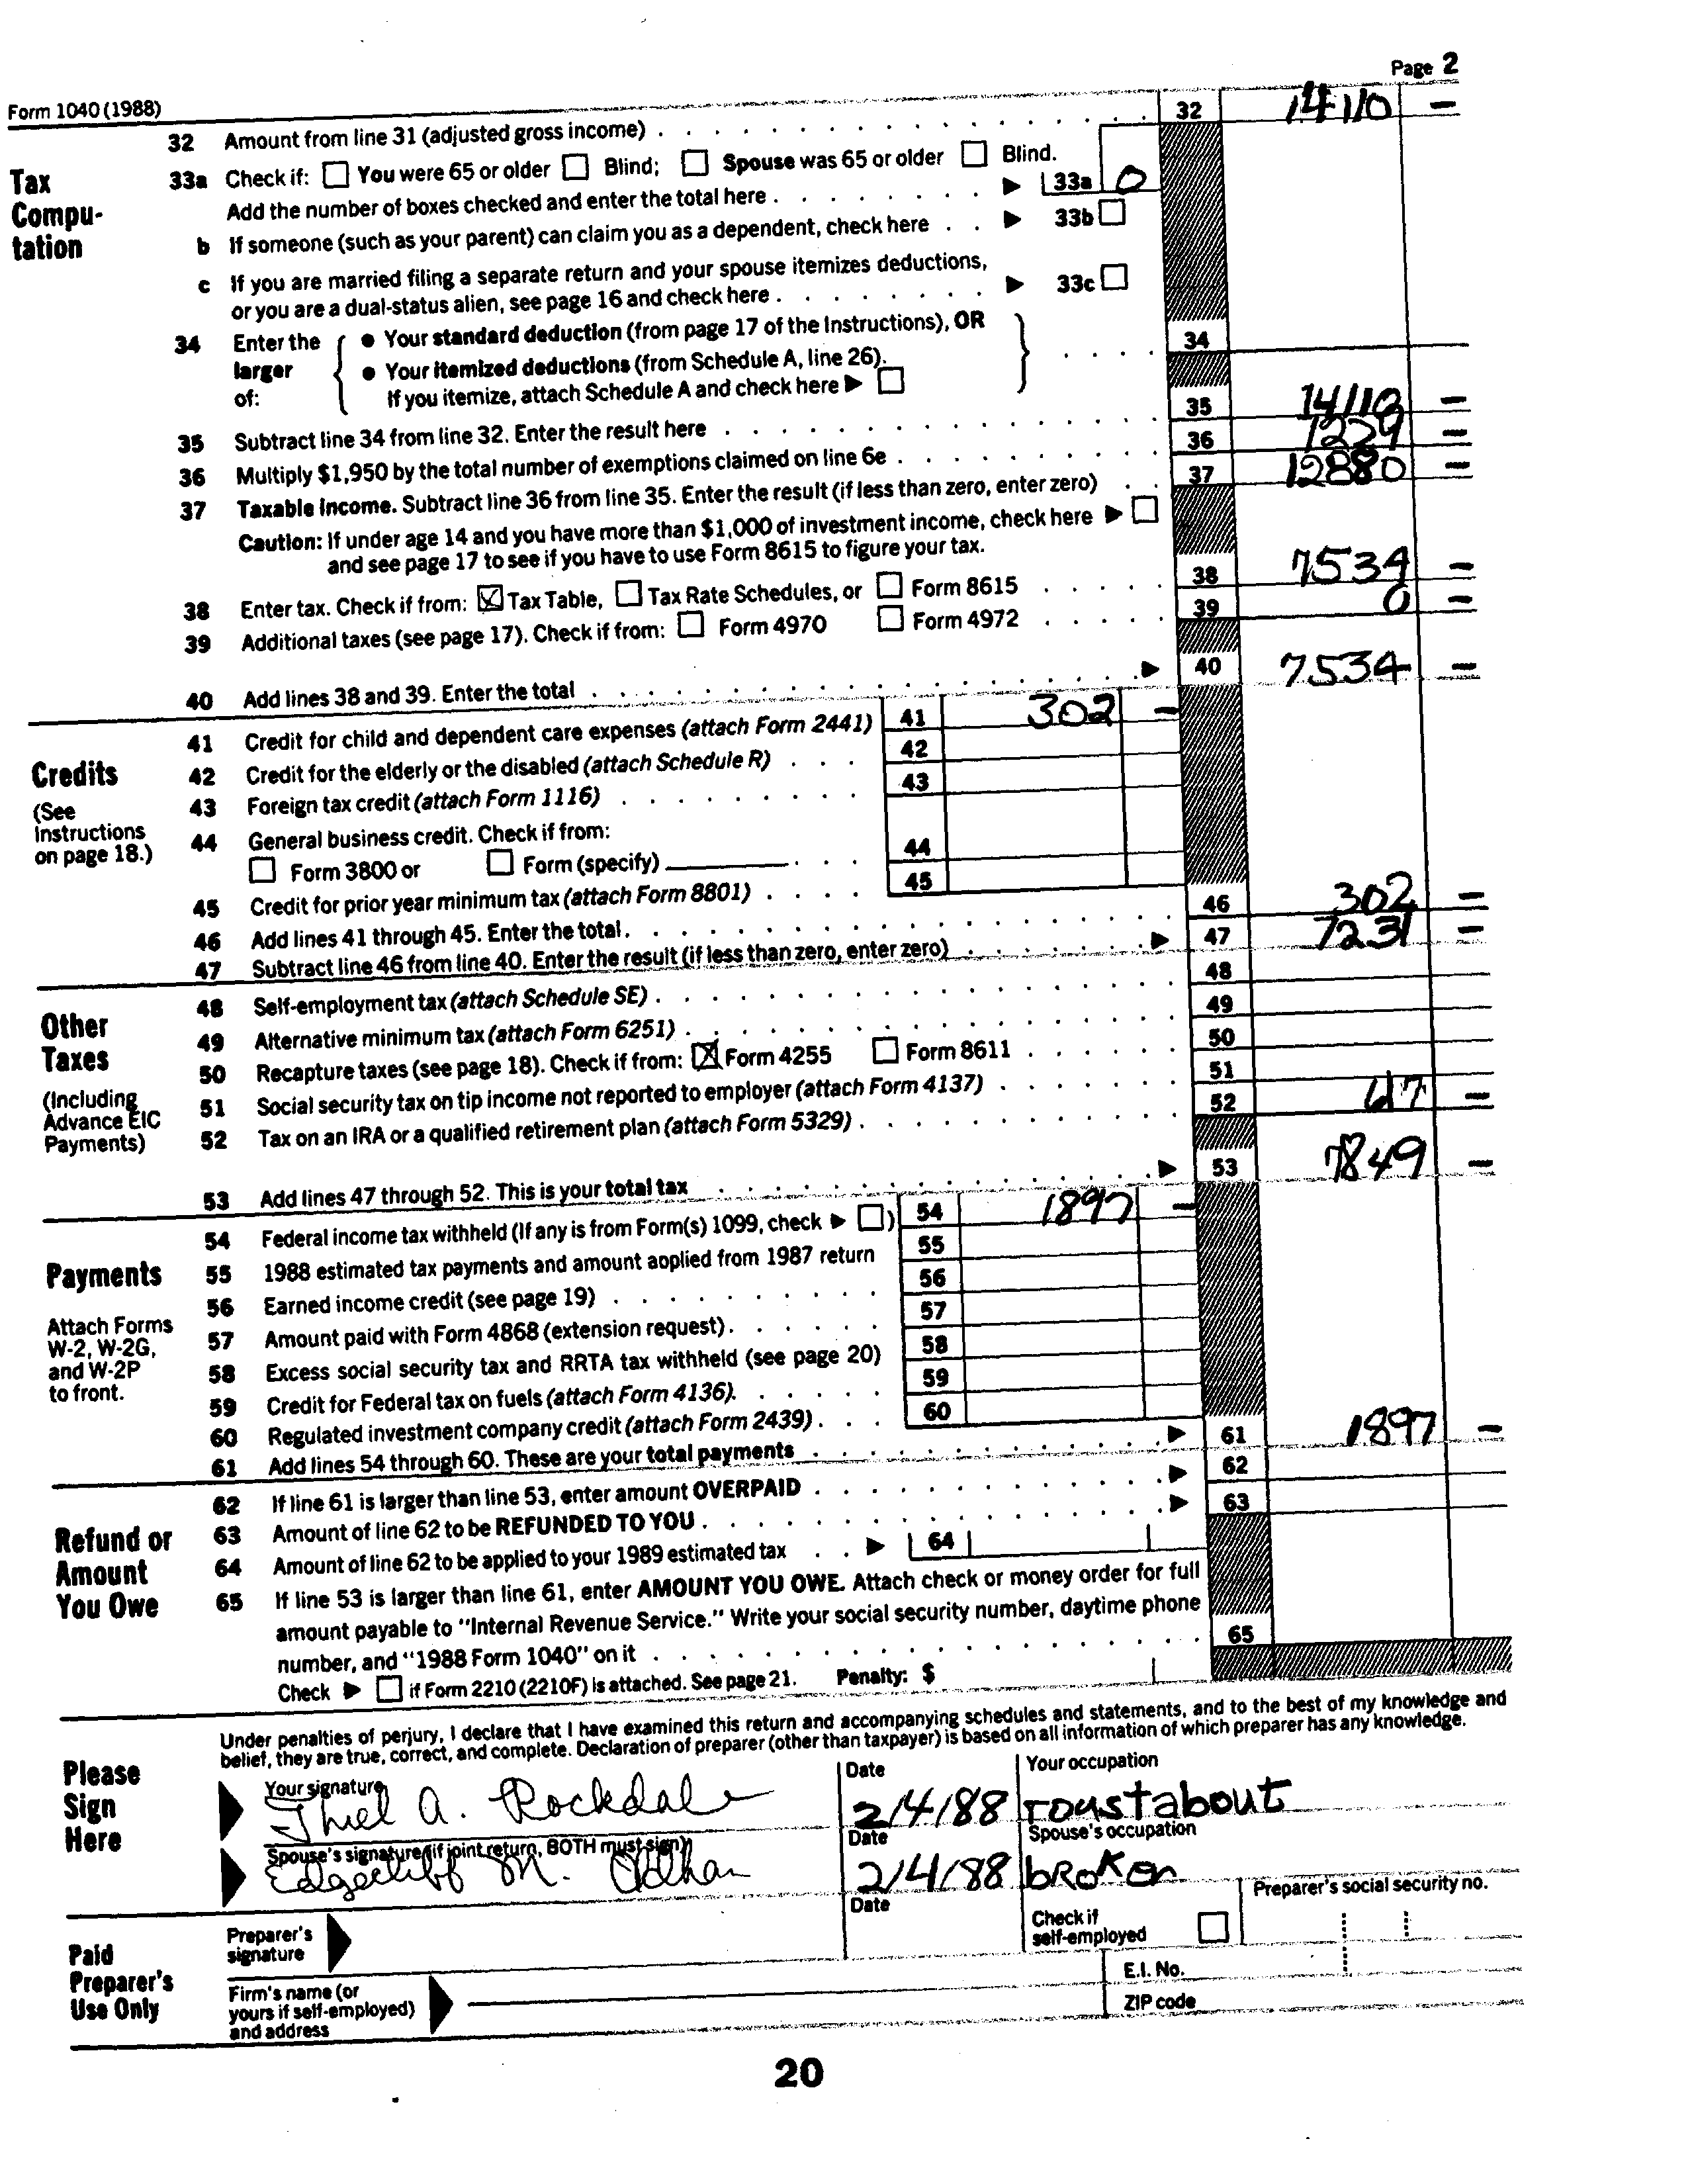 Page 2
Form 1040 (1988)
32 Amount from line 31 (adjusted gross income) 32 14110 –
Tax Compu-tation
33a Check if: You were 65 or older Blind; Spouse was 65 or older Blind.
Add the number of boxes checked and enter the total here 33a 0
b If someone (such as your parent) can claim you as a dependent, check here 33b
c If you are married filing a separate return and your spouse itemizes deductions,
or you are a dual-status alien, see page 16 and check here 33c
34 Enter the larger of: { • Your standard deduction (from page 17 of the Instructions), OR } 34
• Your itemized deductions (from Schedule A, line 26).
If you itemize, attach Schedule A and check here
35 Subtract line 34 from line 32. Enter the result here 35 14110 –
36 Multiply $1,950 by the total number of exemptions claimed on line 6e 36 1229 –
37 Taxable income. Subtract line 36 from line 35. Enter the result (if less than zero, enter zero) 37 12880 –
Caution: If under age 14 and you have more than $1,000 of investment income, check here
and see page 17 to see if you have to use Form 8615 to figure your tax.
38 Enter tax. Check if from: X Tax Table, Tax Rate Schedules, or Form 8615 38 7534 –
39 Additional taxes (see page 17). Check if from: Form 4970 Form 4972 39 0 –
40 Add lines 38 and 39. Enter the total 40 7534 –
Credits
(See Instructions on page 18.)
41 Credit for child and dependent care expenses (attach Form 2441) 41 302 –
42 Credit for the elderly or the disabled (attach Schedule R) 42
43 Foreign tax credit (attach Form 1116) 43
44 General business credit. Check if from:
Form 3800 or Form (specify) 44
45 Credit for prior year minimum tax (attach Form 8801) 45
46 Add lines 41 through 45. Enter the total 46 302 –
47 Subtract line 46 from line 40. Enter the result (if less than zero, enter zero) 47 7231 –
Other Taxes
(Including Advance EIC Payments)
48 Self-employment tax (attach Schedule SE) 48
49 Alternative minimum tax (attach Form 6251) 49
50 Recapture taxes (see page 18). Check if from: X Form 4255 Form 8611 50
51 Social security tax on tip income not reported to employer (attach Form 4137) 51
52 Tax on an IRA or a qualified retirement plan (attach Form 5329) 52 617 –
53 Add lines 47 through 52. This is your total tax 53 7849 –
Payments
Attach Forms W-2, W-2G, and W-2P to front.
54 Federal income tax withheld (If any is from Form(s) 1099, check ) 54 1897 –
55 1988 estimated tax payments and amount applied from 1987 return 55
56 Earned income credit (see page 19) 56
57 Amount paid with Form 4868 (extension request) 57
58 Excess social security tax and RRTA tax withheld (see page 20) 58
59 Credit for Federal tax on fuels (attach Form 4136). 59
60 Regulated investment company credit (attach Form 2439) 60
61 Add lines 54 through 60. These are your total payments 61 1897 –
Refund or Amount You Owe
62 If line 61 is larger than line 53, enter amount OVERPAID 62
63 Amount of line 62 to be REFUNDED TO YOU 63
64 Amount of line 62 to be applied to your 1989 estimated tax 64
65 If line 53 is larger than line 61, enter AMOUNT YOU OWE. Attach check or money order for full
amount payable to "Internal Revenue Service." Write your social security number, daytime phone
number, and "1988 Form 1040" on it 65
Check if Form 2210 (2210F) is attached. See page 21. Penalty: $
Please Sign Here
Under penalties of perjury, I declare that I have examined this return and accompanying schedules and statements, and to the best of my knowledge and
belief, they are true, correct, and complete. Declaration of preparer (other than taxpayer) is based on all information of which preparer has any knowledge.
Your signature Date Your occupation
Thiel A. Rockdale 2/4/88 roustabout
Spouse's signature (if joint return, BOTH must sign) Date Spouse's occupation
Edgecliff M. Oldhan 2/4/88 broker
Paid Preparer's Use Only
Preparer's signature Date Check if self-employed Preparer's social security no.
Firm's name (or yours if self-employed) and address E.I. No.
ZIP code
20